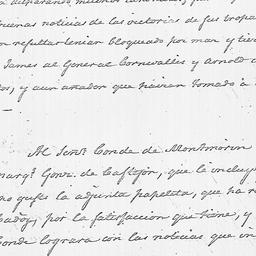 buenas noticias de las victorias de sus tropas
resultar tenian bloqueado por mar y tier
James al General Cornwallis y Arnold
y aun añaden que havian tomado à
Al Senr. Conde de Montmorin
marqs. Gonz. de Castejon, que le incluye
la adjunta papeleta, que ha
Cadiz, por la satisfaccion que tiene, y
Conde lograra con las noticias que in